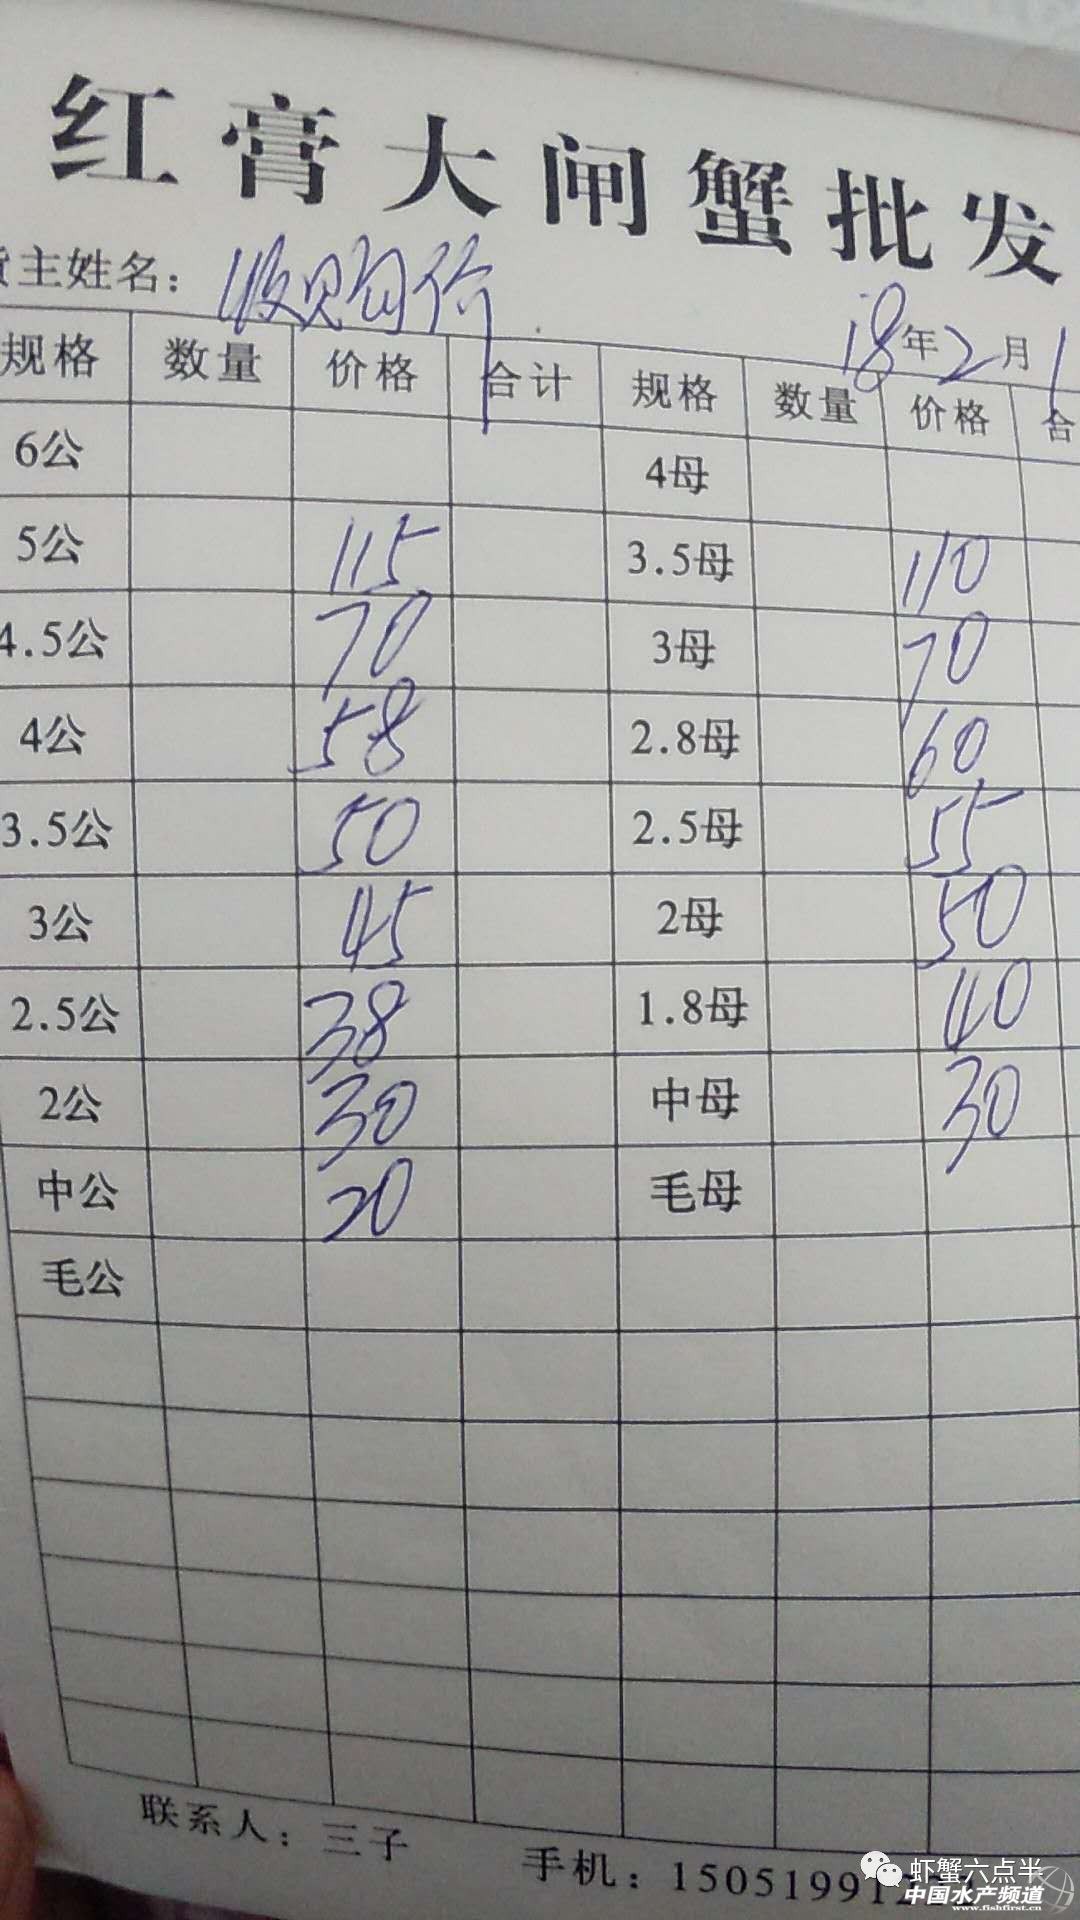 红膏大闸蟹批发
货主姓名：收购价 18年2月1
规格 数量 价格 合计 规格 数量 价格 合
6公 4母
5公 115 3.5母 110
4.5公 70 3母 70
4公 58 2.8母 60
3.5公 50 2.5母 55
3公 45 2母 50
2.5公 38 1.8母 40
2公 30 中母 30
中公 20 毛母
毛公
联系人：三子 手机：150519912
虾蟹六点半
中国水产频道
www.fishfirst.cn